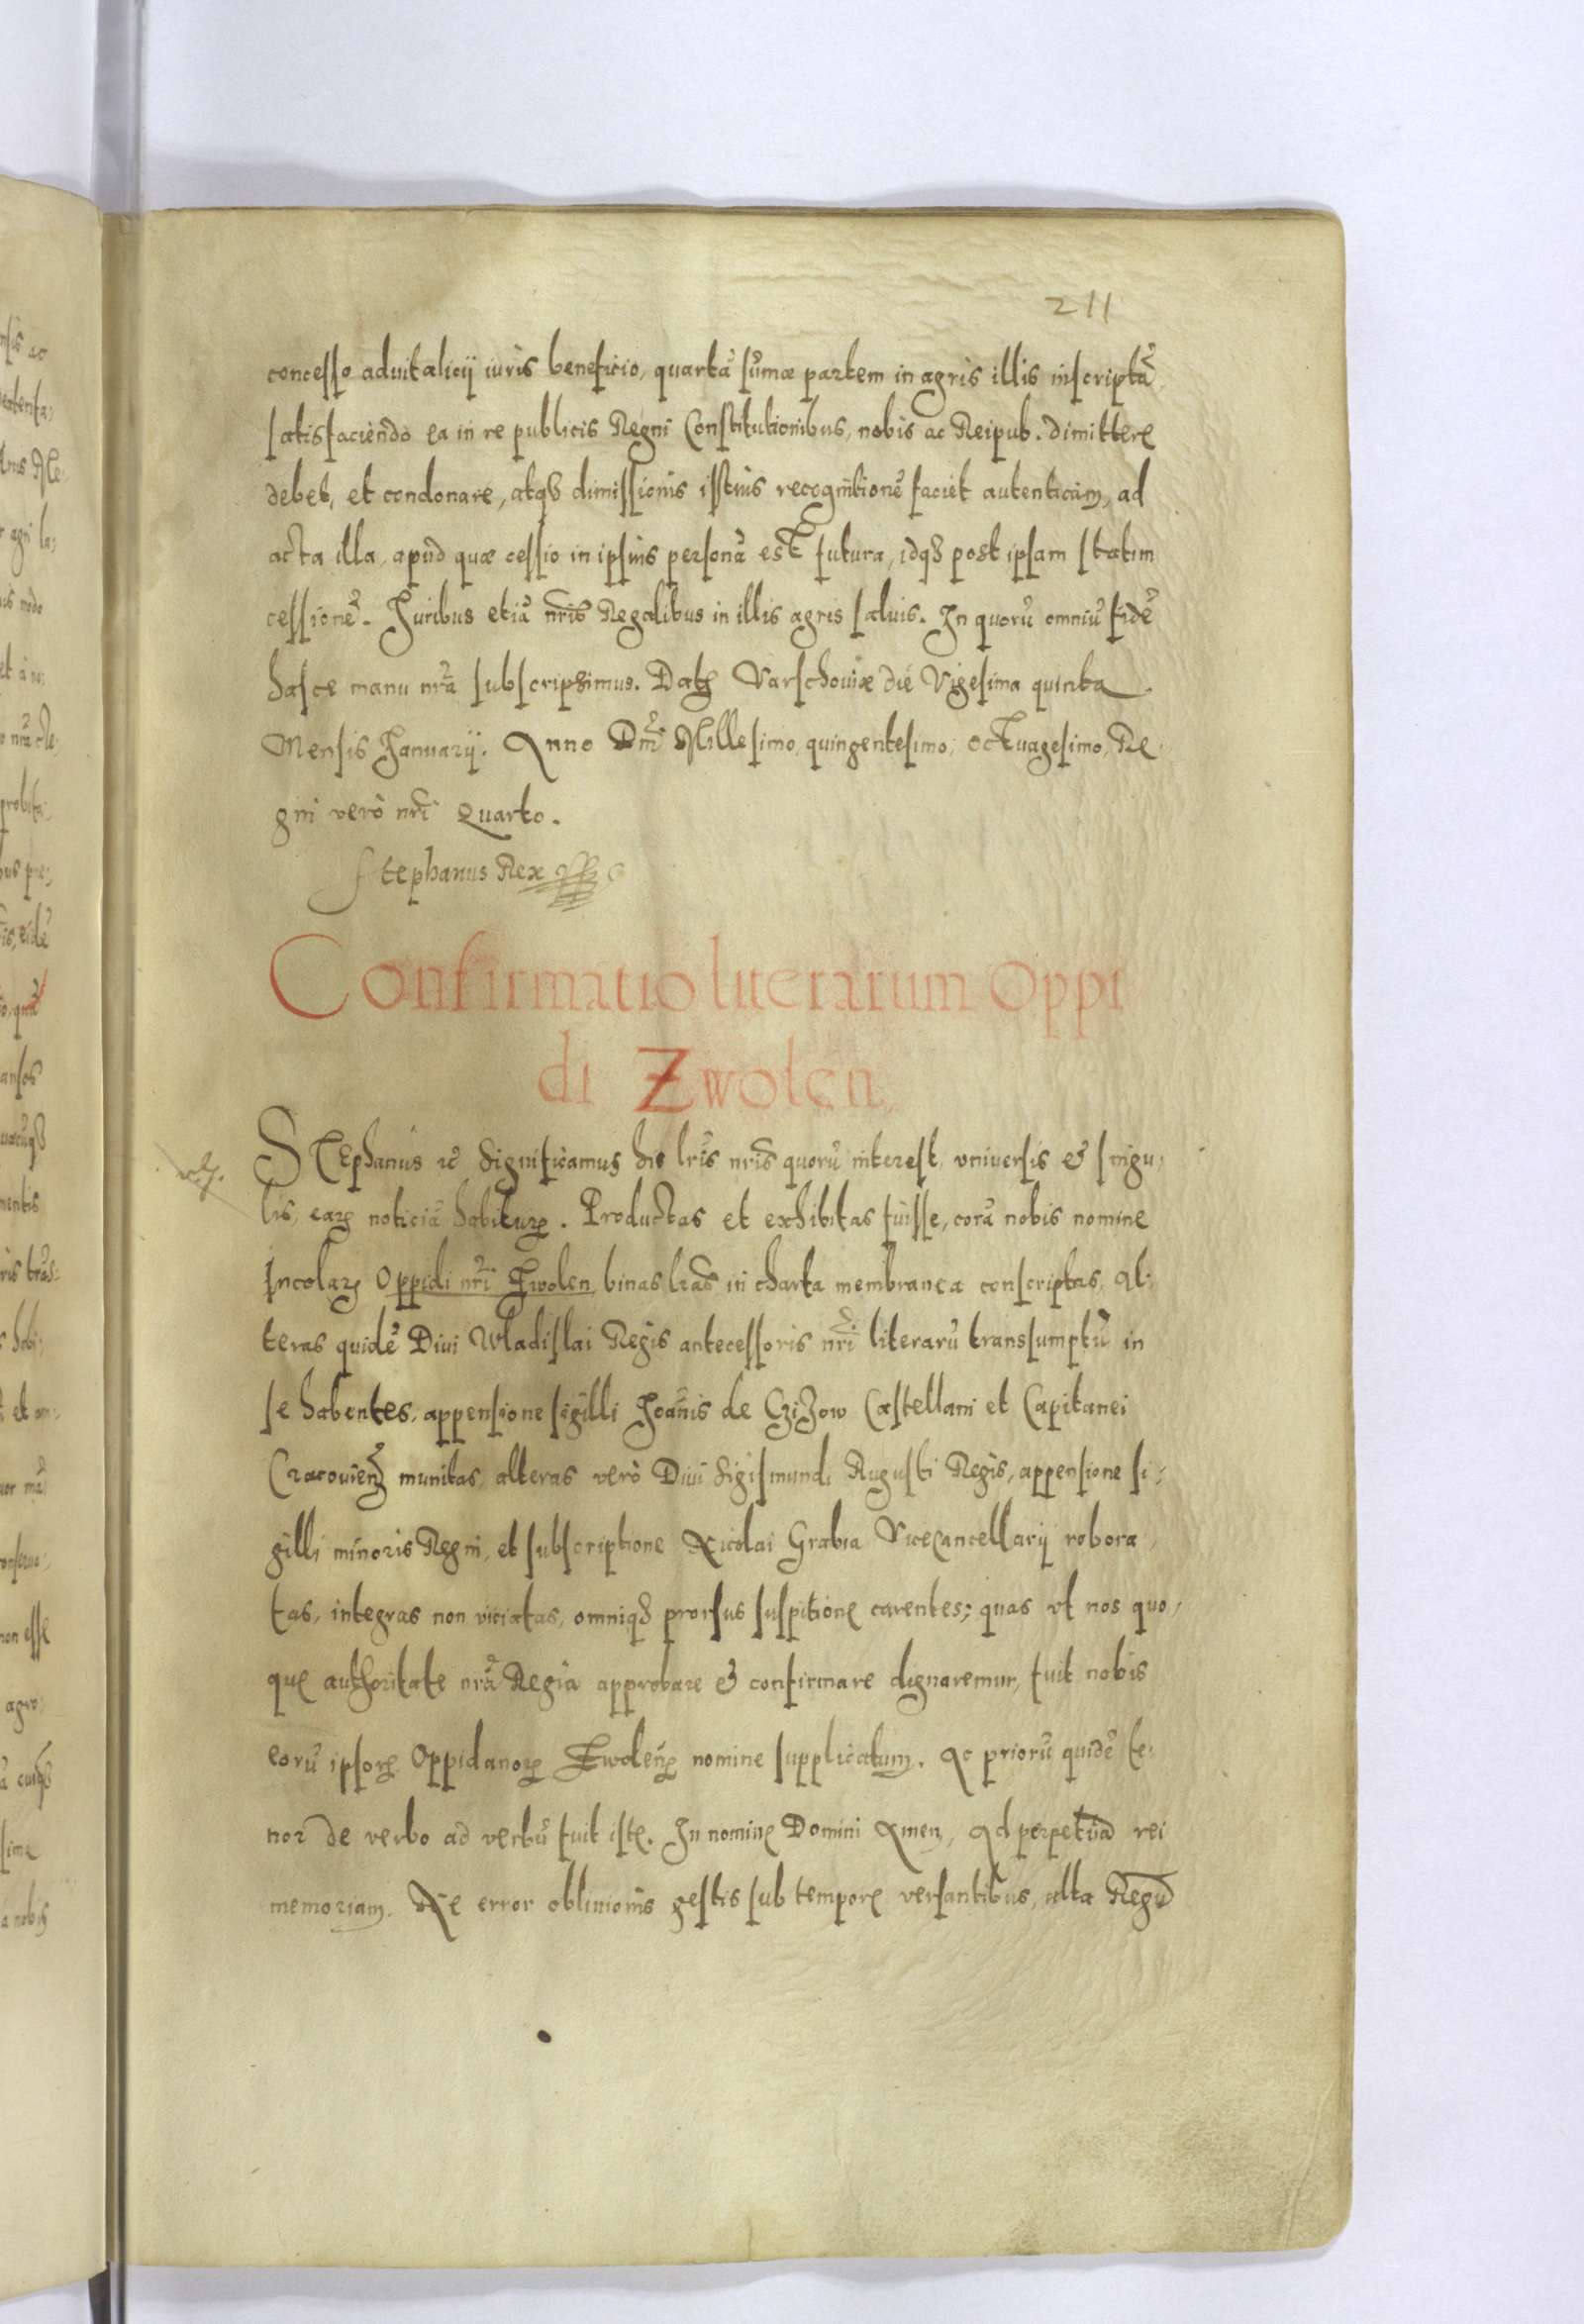 211
concesso aduitalicij iuris beneficio, quartã sũmæ partem in agris illis inscriptã,
satisfaciendo ea in re publicis Regni Constitutionibus, nobis ac Reipub. dimittere
debet, et condonare, atqȝ dimissionis istius recognitionẽ faciet autenticam, ad
acta illa, apud quæ cessio in ipsius personã est futura, idqȝ post ipsam statim
cessionẽ. Juribus etiã nr̃is Regalibus in illis agris saluis. In quorũ omniũ fidẽ
hasce manu nr̃a subscripsimus. Datȝ Varschouiæ die Vigesima quinta
Mensis Januarij. Anno Dñi Millesimo, quingentesimo, octuagesimo, Re
gni verò nr̃i Quarto.
Stephanus Rex
Confirmatio literarum Oppi
di Zwolen,
STephanus ꝛc̃ Significamus his lr̃is nr̃is quorũ interest, vniuersis & singu,
lis, earꝝ noticiã habiturꝝ. Productas et exhibitas fuisse, corã nobis nomine
Incolarꝝ Oppidi nr̃i Zwolen, binas lr̃as in charta membranea conscriptas, Al,
teras quidẽ Diui Wladislai Regis antecessoris nr̃i literarũ transsumptũ in
se habentes, appensione sigilli Joãnis de Czizow Castellani et Capitanei
Cracovieñ munitas, alteras verò Diui Sigismundi Augusti Regis, appensione si,
gilli minoris Regni, et subscriptione Nicolai Grabia ViceCancellarij robora,
tas, integras non viciatas, omniqȝ prorsus suspitione carentes; quas vt nos quo,
que authoritate nr̃a Regia approbare & confirmare dignaremur, fuit nobis
eorũ ipsorꝝ Oppidanorꝝ Zwoleñ nomine supplicatum. Ac priorũ quidẽ te,
nor de verbo ad verbũ fuit iste. In nomine Domini Amen, Ad perpetuã rei
memoriam. Ne error obliuionis gestis sub tempore versantibus, alta Regũ